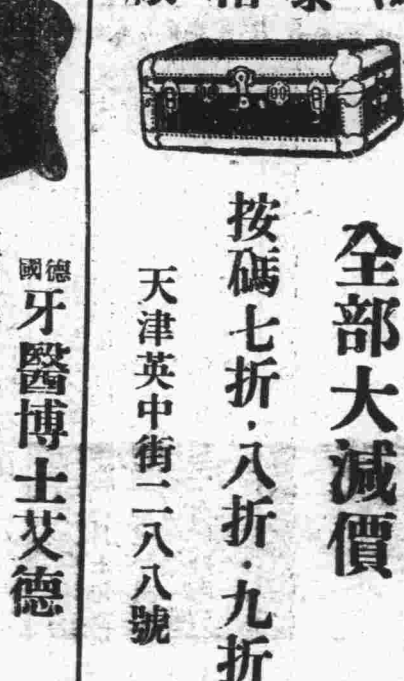 全部大減價
按碼七折·八折·九折
天津英中街二八八號
德國
牙醫博士艾德